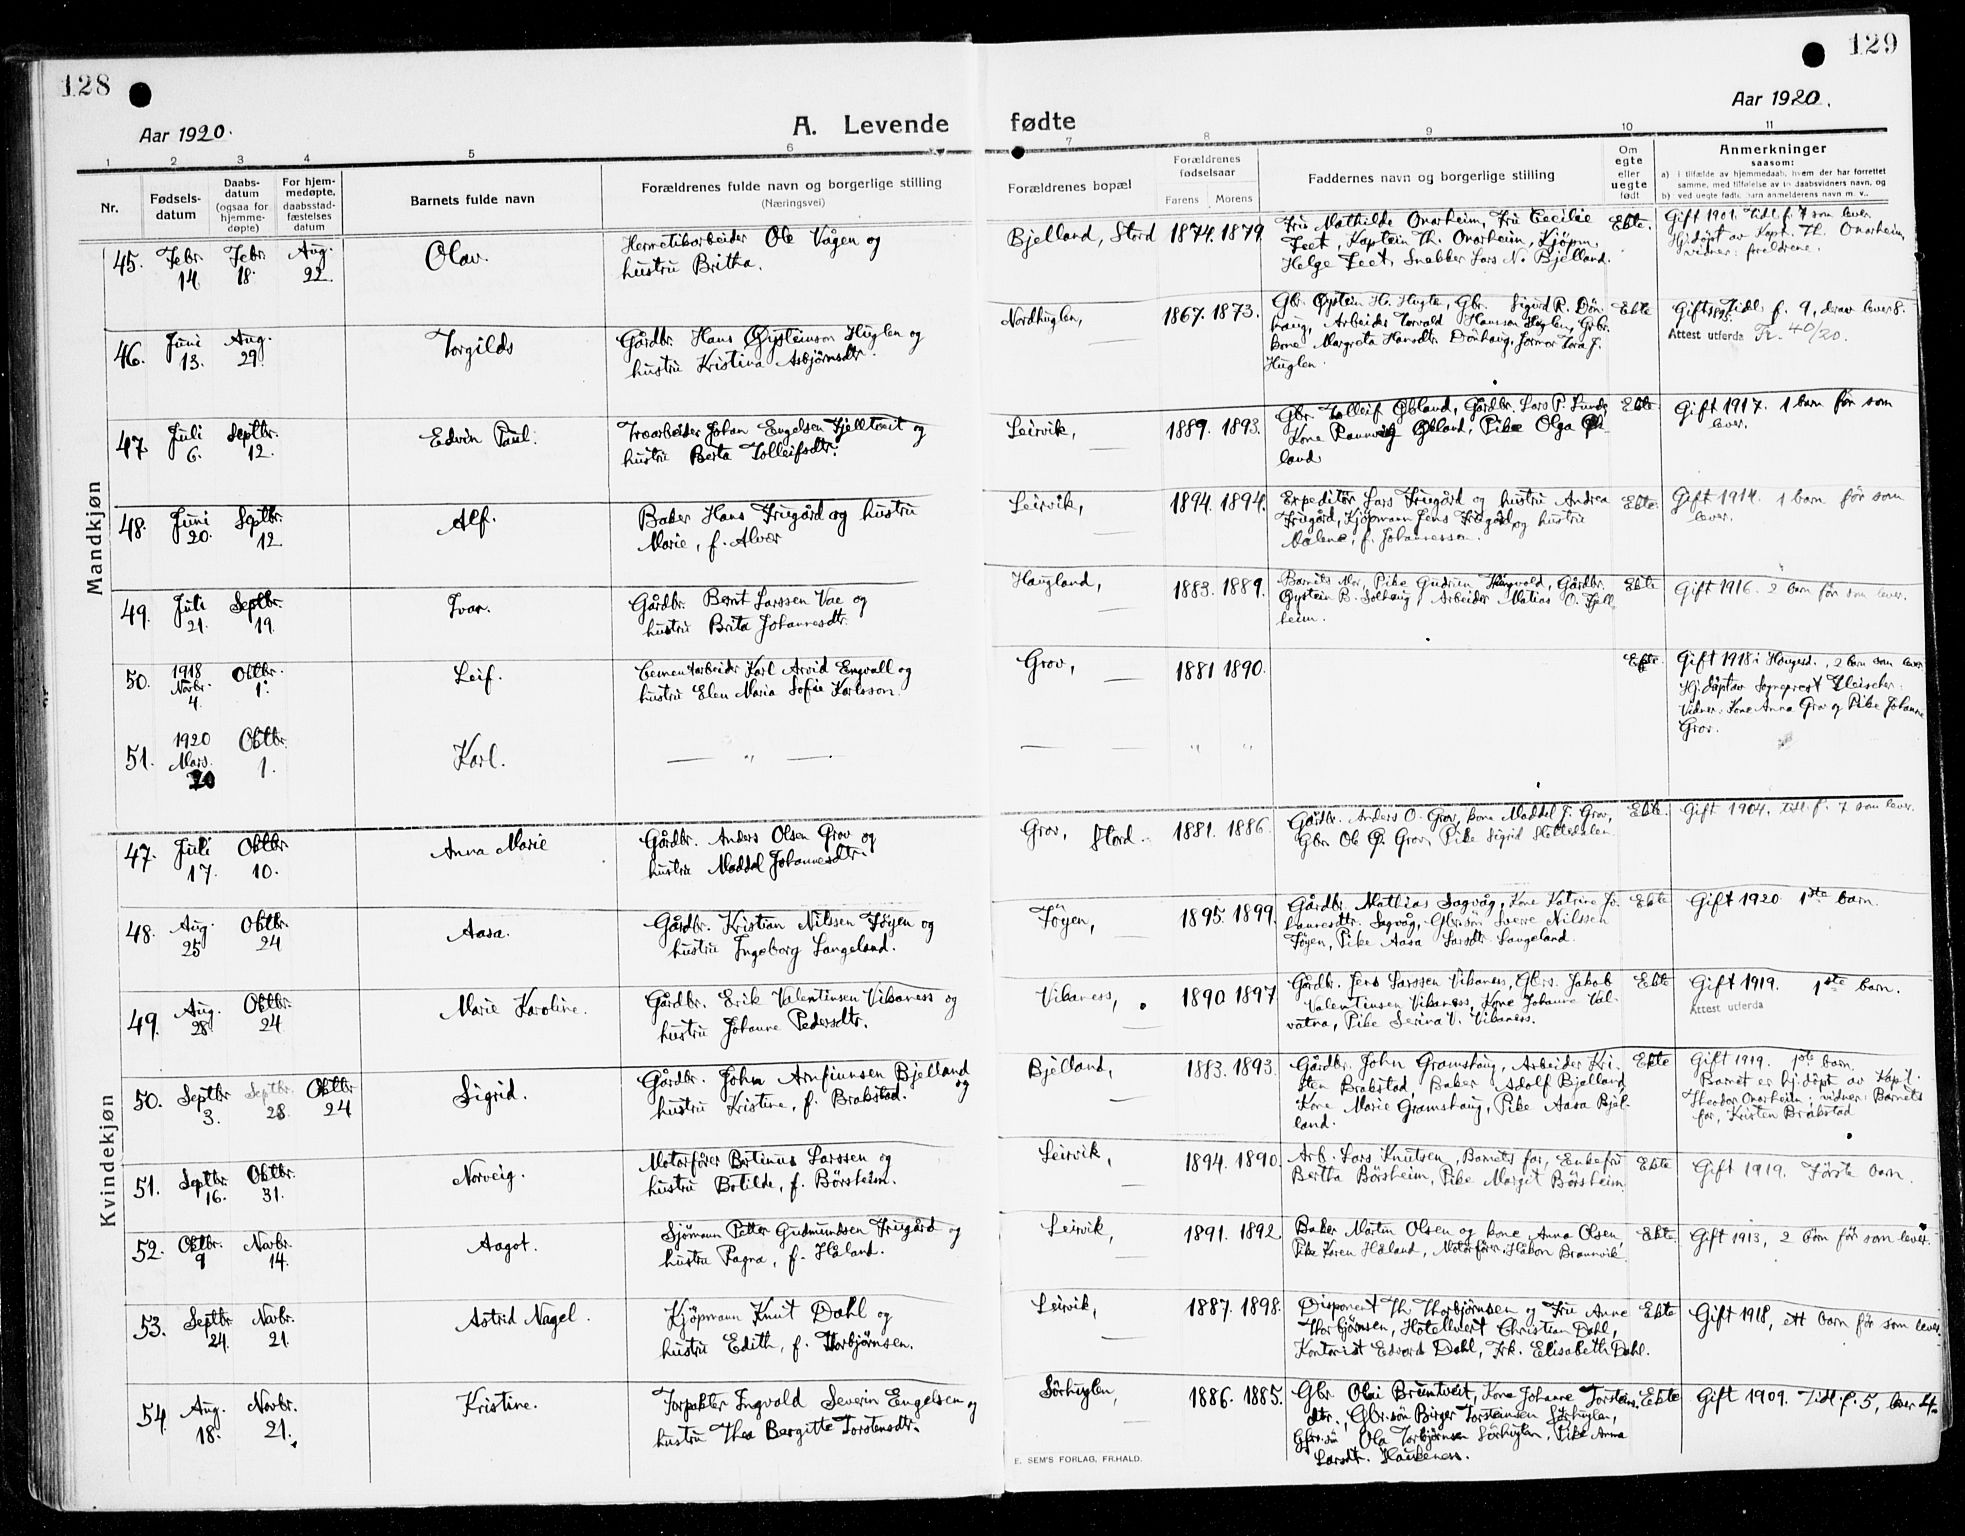 128
129
Aar 1920.
Aar 1920.
A. Levende fødte
1 2 3 4 5 6 7 8 9 10 11
Nr.
Fødsels-
datum
Daabs-
datum
(ogsaa for
hjemme-
døpte)
For hjem-
medøpte,
daabsstad-
fæstelses
datum
Barnets fulde navn
Forældrenes fulde navn og borgerlige stilling
(Næringsvei)
Forældrenes bopæl
Forældrenes
fødselsaar
Farens Morens
Faddernes navn og borgerlige stilling
Om
egte
eller
uegte
født
Anmerkninger
saasom:
a) i tilfælde av hjemmedaab, hvem der har forrettet
samme, med tilføielse av to daabsvidners navn, og
b) ved uegte født, barn anmelderens navn m. v..
Mandkjøn
45. Febr. 14 Febr. 18. Aug. 22. Olav.
Hermetikarbeider Ole Vågen og
hustru Britha.
Bjelland, Stord 1874. 1879.
Fru Mathilde Onarheim, Fru Cecilie
Leet, Kaptein Th. Onarheim, Kjöpm.
Helge Leet, Snekker Lars N. Bjelland.
Ekte.
Gift 1901. Tidl. f. 7 som lever.
Hj. döpt av Kapt. Th. Onarheim,
vidner: foreldrene.
46. Juni 13. Aug. 29. Torgilds
Gårdbr. Hans Øysteinson Huglen og
hustru Kristina Asbjørnsdtr.
Nordhuglen, — 1867. 1873.
Gbr. Øystein H. Hugle, Gbr. Sigurd R. Dön-
haug, Arbeider Torvald Hansson Huglen, Gbr.
kone Margreta Hansdtr. Dönhaug, Jormor Tora J.
Huglen.
Ekte
Gift 1893. Tidl. f. 9, derav lever 8.
Attest utferda Fr. 40/20.
47. Juli 6. Septbr. 12. Edvin Paul.
Træarbeider Johan Engelsen Fjelltveit og
hustru Berta Tolleifsdtr.
Leirvik, — 1889. 1893.
Gbr. Tolleif Øbland, Gårdbr. Lars P. Lunde,
Kone Rannveig Øbland, Pike Olga Øb-
land
Ekte.
Gift 1917. 1 barn før som
lever.
48. Juni 20. Septbr. 12 Alf.
Baker Hans Frugård og hustru
Marie, f. Alver
Leirvik, — 1894. 1894.
Expeditör Lars Frugård og hustru Andrea
Frugård, Kjöpmann Jens Frugård og hustru
Malene, f. Johannessen.
Ekte.
Gift 1914. 1 barn før som
lever.
49. Juli 21. Septbr. 19. Ivar.
Gårdbr. Bernt Larssen Vae og
hustru Brita Johannesdtr.
Haugland, — 1883. 1889.
Barnets Mor, Pike Gudrun Haugvold, Gårdbr.
Øystein B. Solhaug, Arbeider Matias O. Fjell-
heim.
Ekte
Gift 1916. 2 barn før som lever.
50. 1918 Novbr. 4. Oktbr. 1. Leif.
Cementarbeider Karl Arvid Engvall og
hustru Elen Maria Sofie Karlsson.
Grov, — 1881 1890.
Ekte.
Gift 1918 i Haugesd., 2 barn som lever
Hj. döpt av Sogneprest Fleischer.
Vidner: Kone Anna Grov og Pike Johanne
Grov.
51. 1920 Mars. 20 Oktbr. 1. Karl.
— „ —
— — „ „
Kvindekjøn
47. Juli 17. Oktbr. 10. Anna Marie
Gårdbr. Anders Olsen Grov og
hustru Maddel Johannesdtr.
Grov, Stord. 1881. 1886.
Gårdbr. Anders O. Grov, kone Maddel J. Grov,
Gbr. Ole Ø. Grov, Pike Sigrid Slettedalen
Ekte.
Gift 1904, tidl. f. 7 som lever.
48. Aug. 25 Oktbr. 24 Aasa.
Gårdbr. Kristian Nilssen Föyen og
hustru Ingeborg Langeland.
Föyen, — 1895. 1899.
Gårdbr. Mathias Sagvåg, Kone Katrine Jo-
hannesdtr. Sagvåg, Gbr.sön Sverre Nilssen
Föyen, Pike Aasa Larsdtr. Langeland.
Ekte
Gift 1920 1ste barn.
49. Aug. 28 Oktbr. 24 Marie Karoline.
Gårdbr. Erik Valentinsen Vikaness og
hustru Johanne Pedersdtr.
Vikaness, — 1890. 1897
Gårdbr. Jens Larssen Vikaness, Gbrs. Jakob
Valentinsen Vikaness, Kone Johanne Val-
vatna, Pike Serina V. Vikaness.
Ekte
Gift 1919. 1ste barn.
Attest utferda
50. Septbr 3. Septbr. 28 Oktbr 24 Sigrid.
Gårdbr. John Arnfinnsen Bjelland og
hustru Kristine, f. Brakstad.
Bjelland, — 1883. 1893.
Gårdbr. John Gramshaug, Arbeider Kri-
sten Brakstad Baker Adolf Bjelland
Kone Marie Gramshaug, Pike Aasa Bjel-
land.
Ekte
Gift 1919. 1ste barn.
Barnet er hj. döpt av Kapt.
Theodor Onarheim, vidner: Barnets
far, Kristen Brakstad
51. Septbr. 16. Oktbr. 31. Norveig.
Motorfører Bertinus Larssen og
hustru Botilde, f. Börsheim.
Leirvik, — 1894. 1890.
Arb. Lars Knutsen, Barnets far, Enkefru
Bertha Börsheim, Pike Margit Börsheim
Ekte
Gift 1919. Første barn.
52. Oktbr. 9 Novbr. 14. Aagot.
Sjømann Petter Gudmundsen Frugård og
hustru Ragna, f. Håland.
Leirvik, — 1891. 1892
Baker Martin Olsen og kone Anna Olsen,
Pike Karen Håland, Motorfører Håkon Brannvik
Ekte.
Gift 1913, 2 barn før som lever.
53. Septbr 24. Novbr. 21. Astrid Nagel.
Kjöpmann Knut Dahl og
hustru Edith, f. Thorbjörnsen.
Leirvik, — 1887. 1898.
Disponent Th. Thorbjörnsen og Fru Anne
Thorbjörnsen, Hotellvert Christian Dahl,
Kontorist Edvard Dahl, Frk. Elisabeth Dahl.
Ekte
Gift 1918, ett barn før som lever.
54. Aug. 18. Novbr. 21. Kristine.
Forpakter Ingvald Severin Engelsen og
hustru Thea Bergitte Torstensdtr.
Sörhuglen, — 1886. 1885.
Gbr. Olai Bruntveit, Kone Johanne Torsteins-
dtr., Gbr.sön Birger Torsteinsen Sörhuglen,
Gbr.sön Ola Torbjörnsen Sörhuglen, Pike Anna
Larsdtr. Haukeness.
Ekte
Gift 1909. Tidl. f. 5, lever 4.
E. SEM'S FORLAG, FR.HALD.